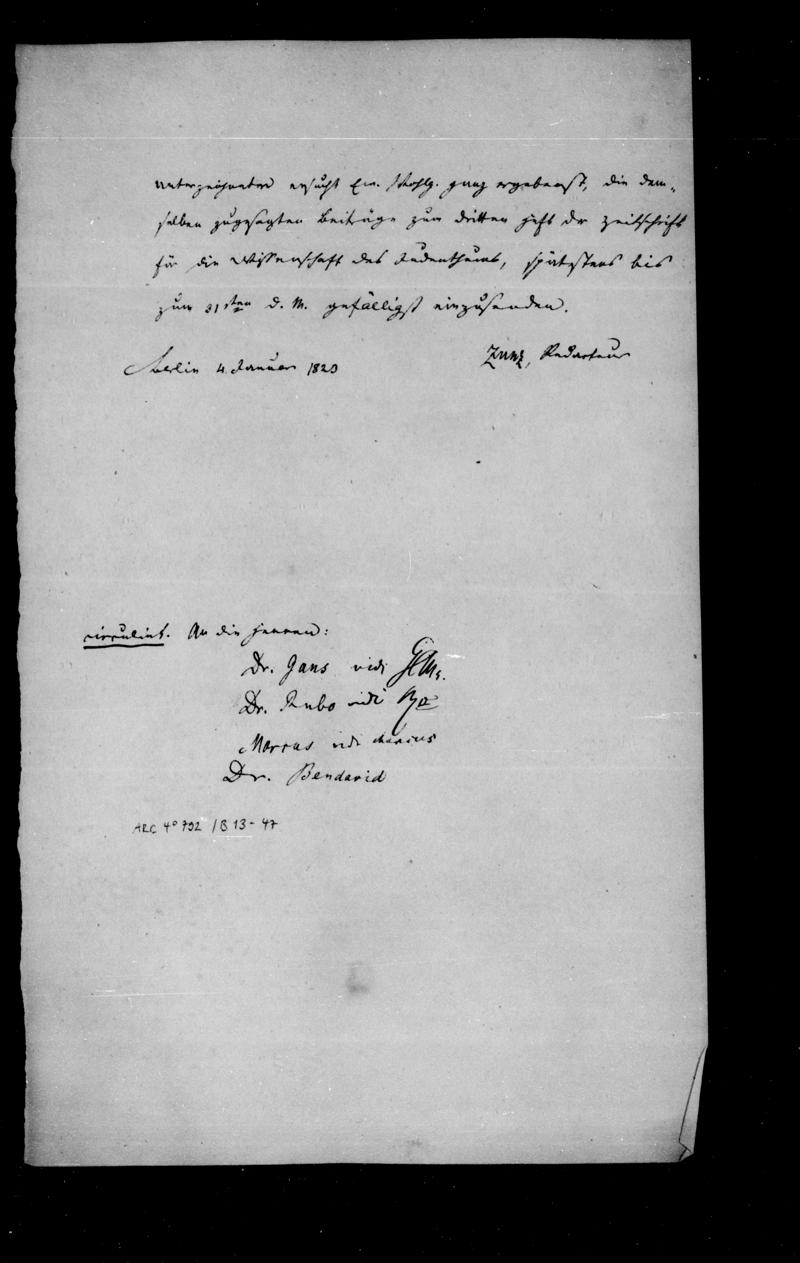 Unterzeichneter ersucht Ew. Wohlg. ganz ergebenst, die dem-
selben zugesagten Beiträge zum dritten Heft der Zeitschrift
für die Wissenschaft des Judenthums, spätstens bis
zum 31sten d. M. gefälligst einzusenden.
Berlin 4 Januar 1823
Zunz, Redacteur
circulirt. An die Herren:
Dr. Gans vidi Gans.
Dr. Rubo vidi Ro
Marcus vidi Marcus
Dr. Bendavid
ARC 4° 792 / B 13 - 47